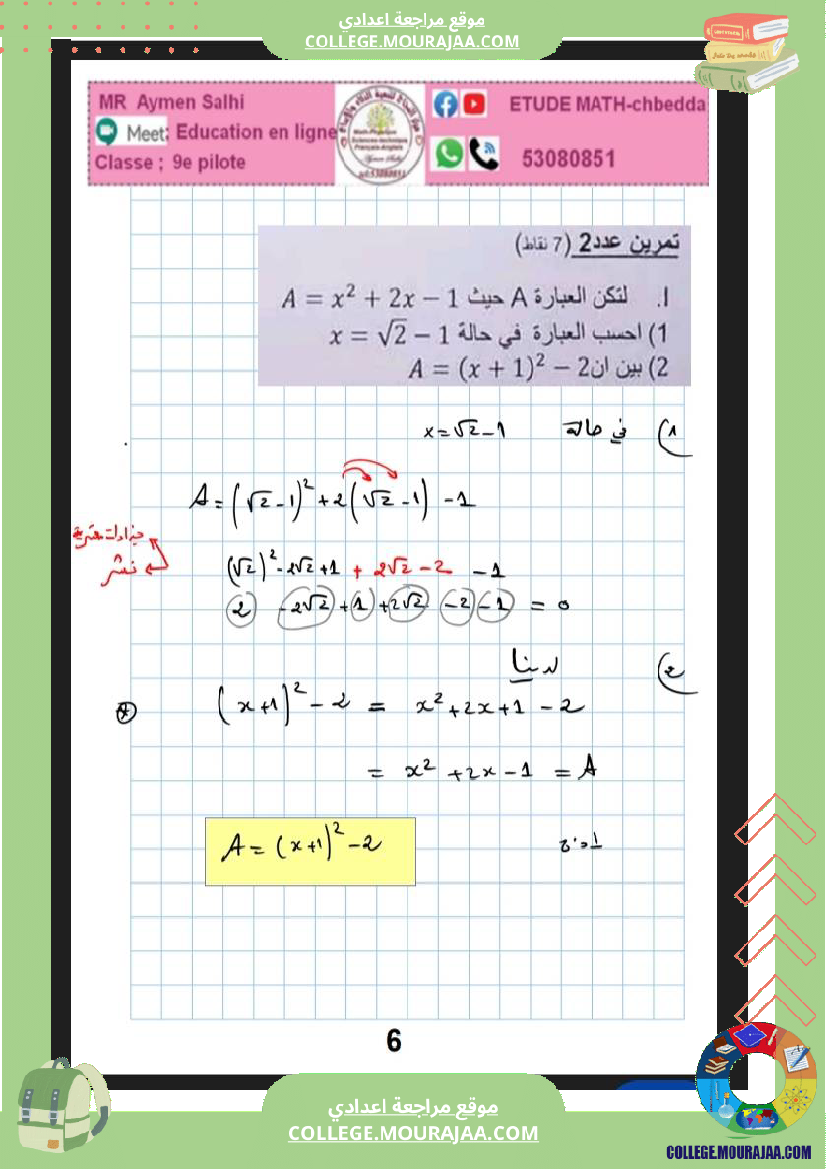 موقع مراجعة اعدادي
COLLEGE.MOURAJAA.COM
MR Aymen Salhi
Meet: Education en ligne
Classe ; 9e pilote
ETUDE MATH-chbedda
53080851
تمرين عدد2 (7 نقاط)
I. لتكن العبارة A حيث A = x² + 2x − 1
1) احسب العبارة في حالة x = √2 − 1
2) بين ان A = (x + 1)² − 2
1) في حالة x = √2 − 1
A = (√2 − 1)² + 2(√2 − 1) − 1
جذاءات معتبرة
نشر
(√2)² − 2√2 + 1 + 2√2 − 2 − 1
2 − 2√2 + 1 + 2√2 − 2 − 1 = 0
2) لدينا
(x + 1)² − 2 = x² + 2x + 1 − 2
= x² + 2x − 1 = A
A = (x + 1)² − 2
6
موقع مراجعة اعدادي
COLLEGE.MOURAJAA.COM
COLLEGE.MOURAJAA.COM